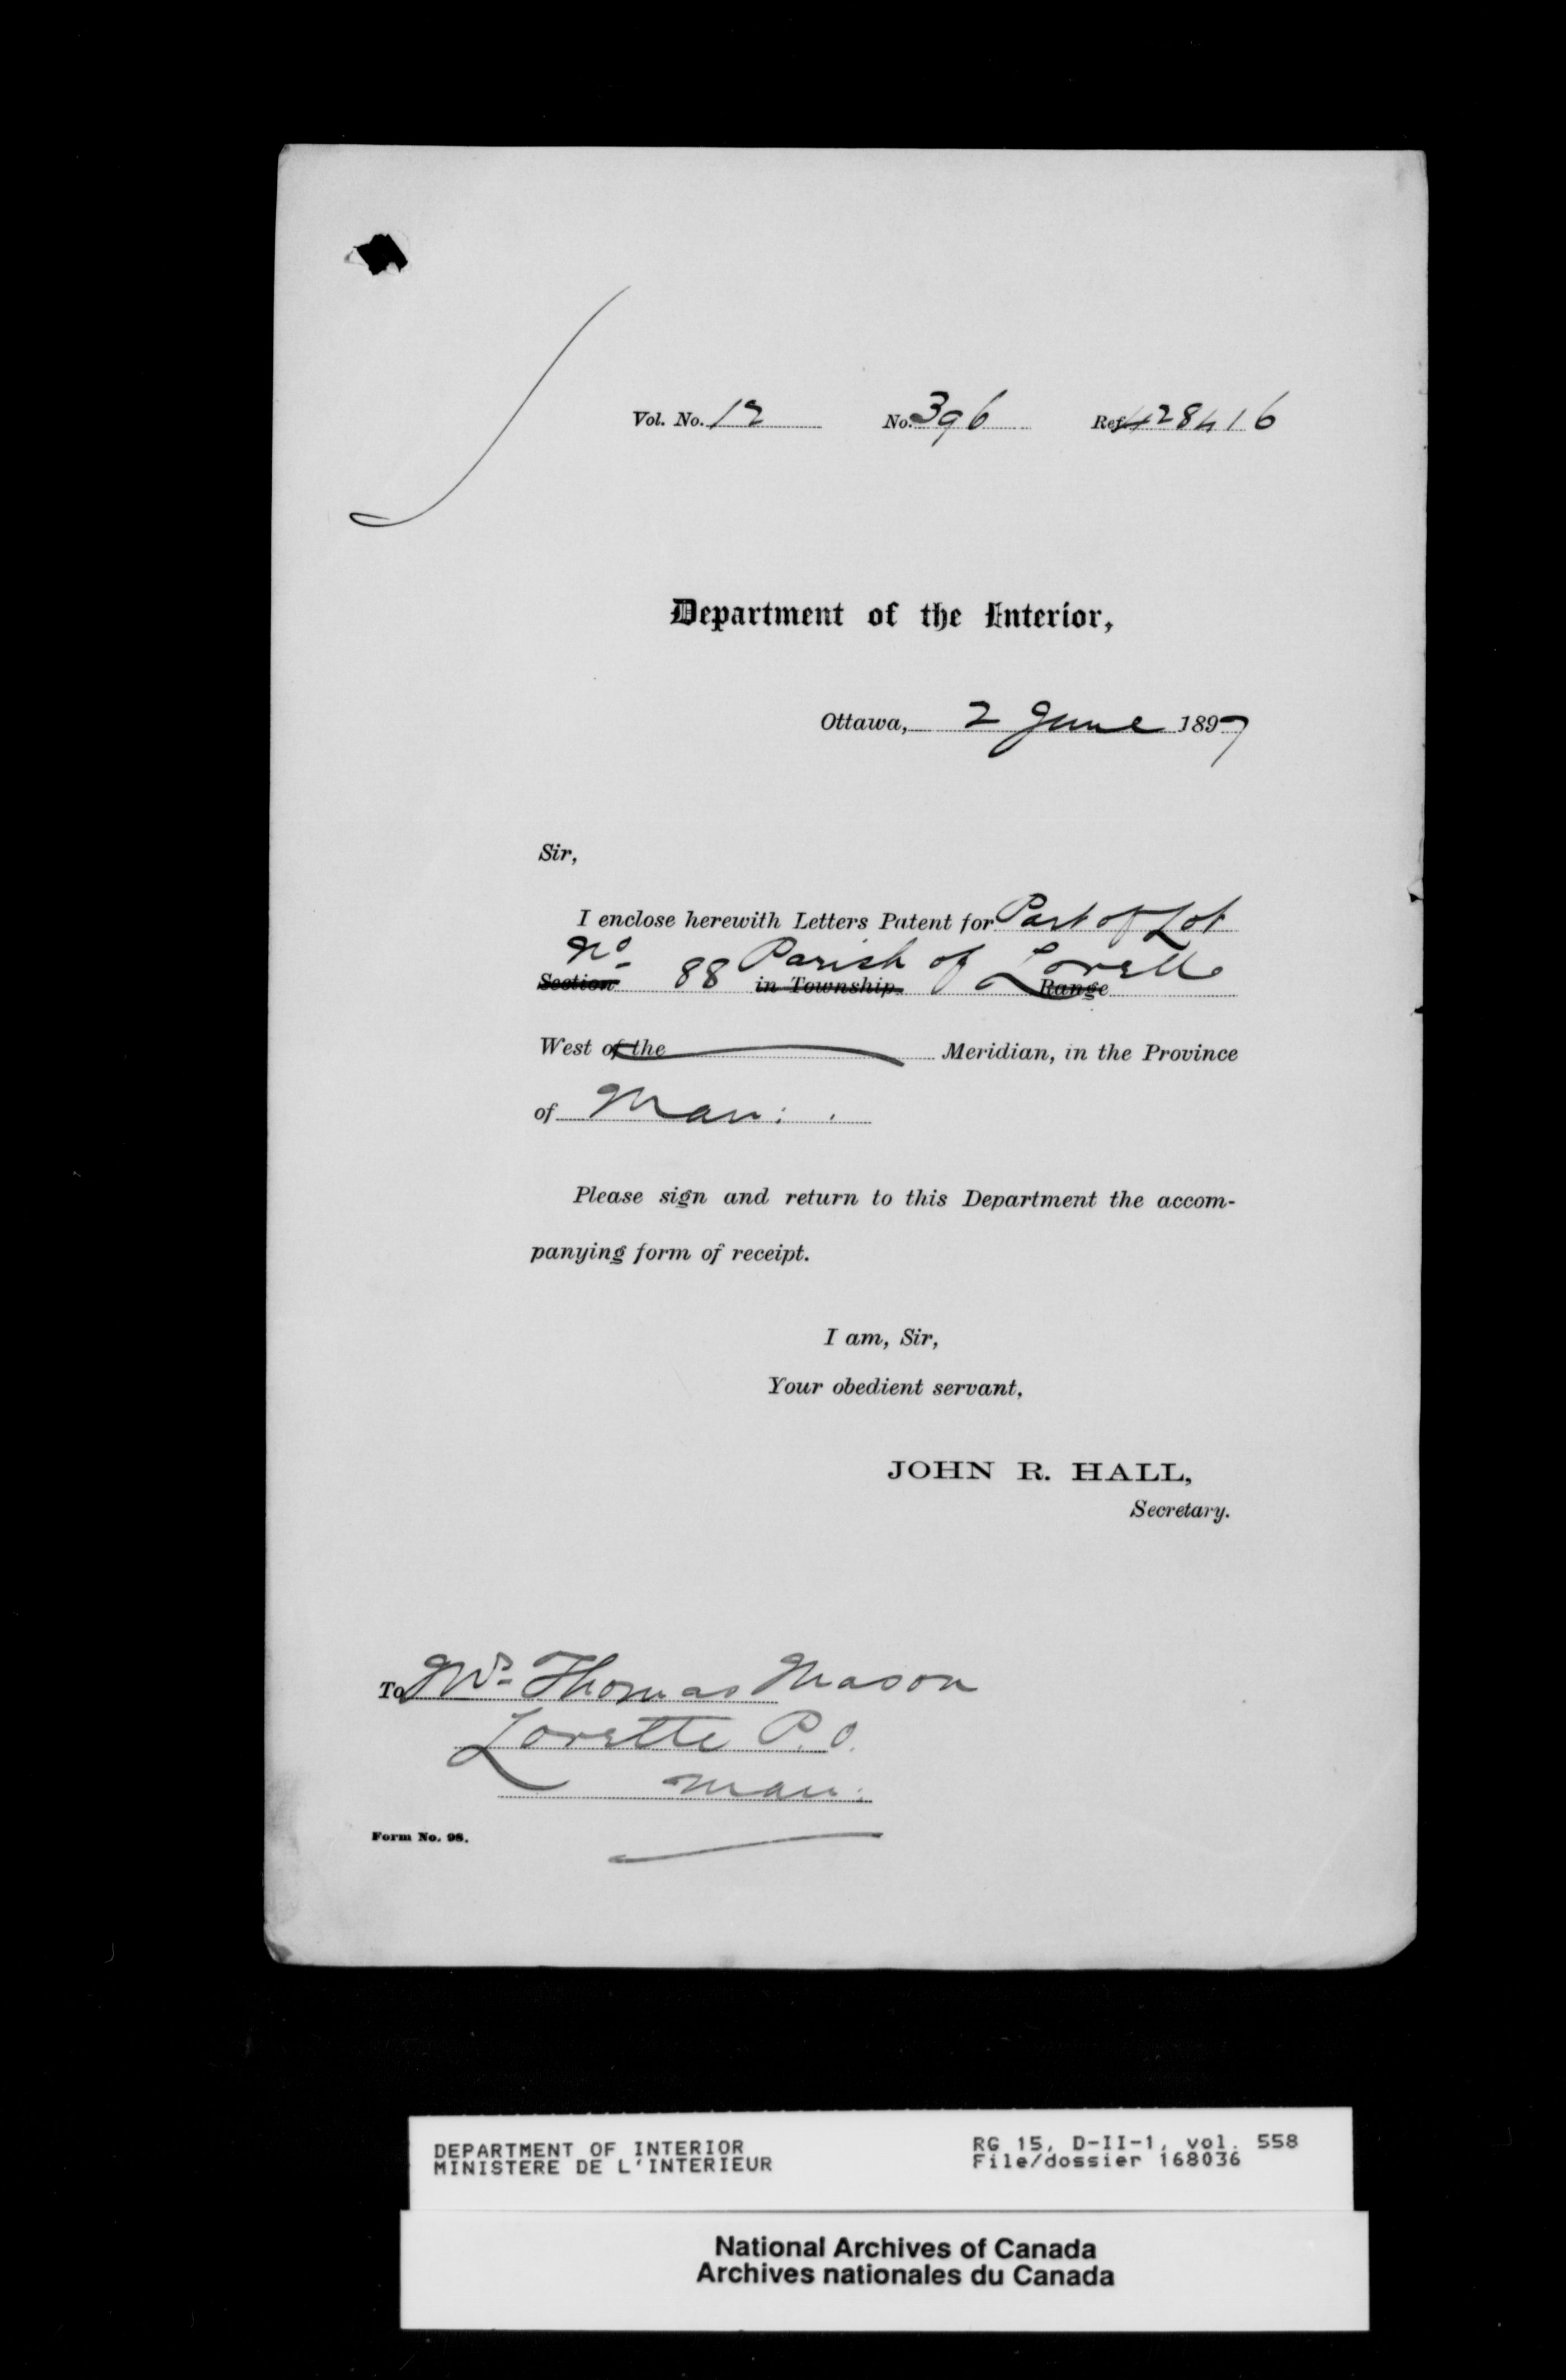 Vol. No. 12 No. 396 Ref. 428416
Department of the Interior,
Ottawa, 2 June 1897
Sir,
I enclose herewith Letters Patent for Part of Lot
No
Section 88 in Township Parish of Lorette Range
West of the Meridian, in the Province
of Man:
Please sign and return to this Department the accom-
panying form of receipt.
I am, Sir,
Your obedient servant,
JOHN R. HALL,
Secretary.
To Mr. Thomas Mason
Lorette P.O.
Man:
Form No. 98.
DEPARTMENT OF INTERIOR RG 15, D-II-1, vol. 558
MINISTERE DE L'INTERIEUR File/dossier 168036
National Archives of Canada
Archives nationales du Canada